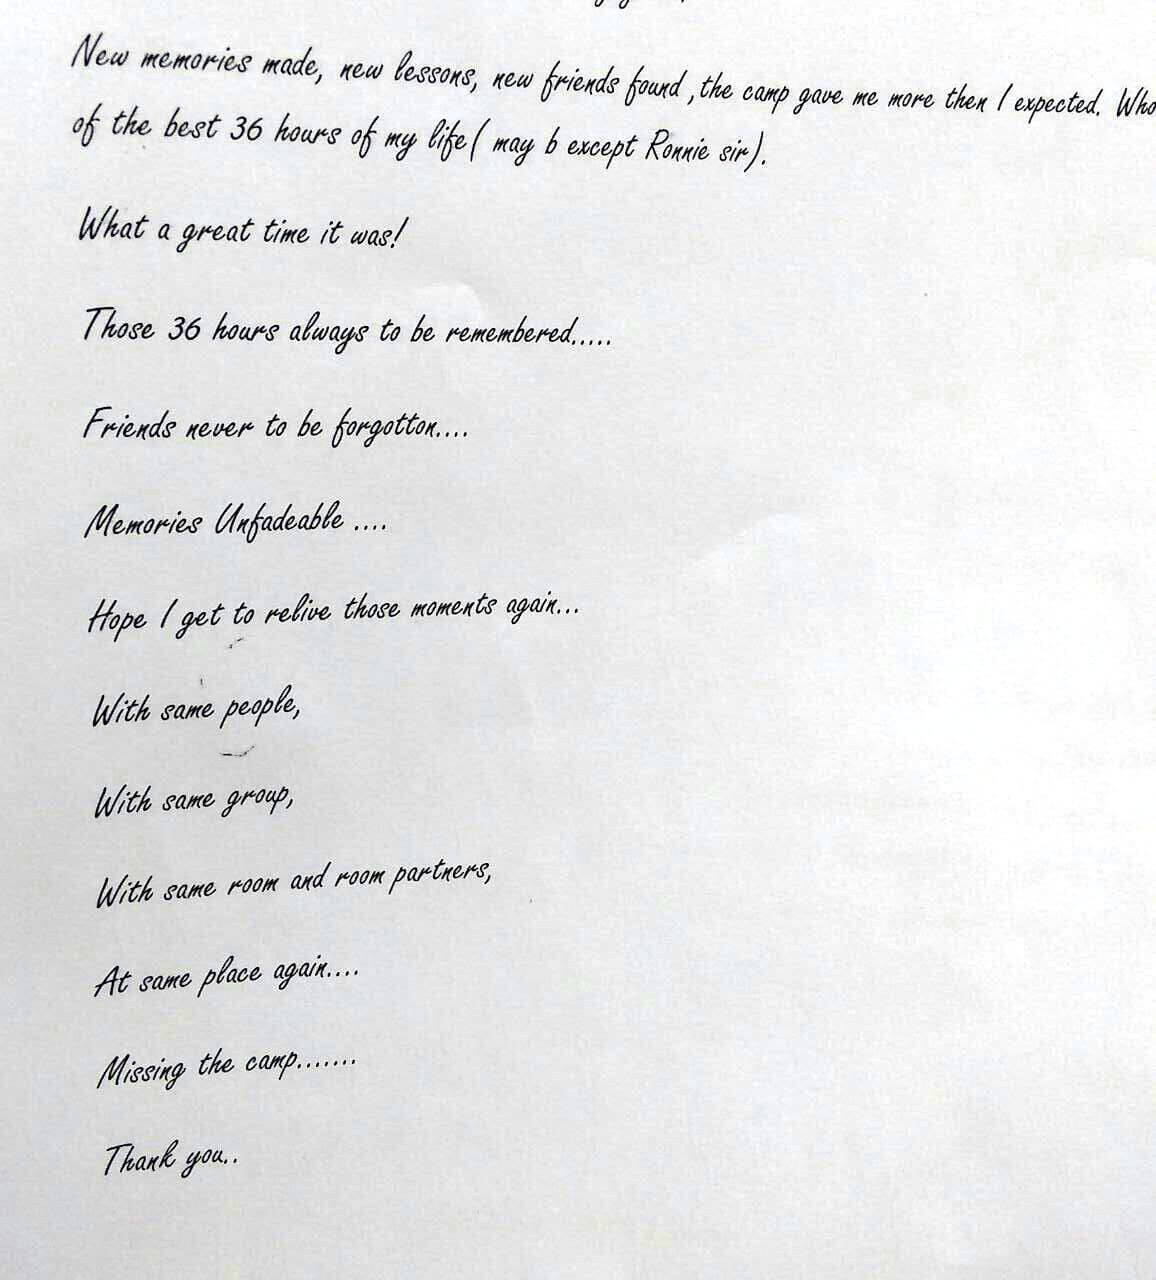 New memories made, new lessons, new friends found ,the camp gave me more then I expected.
of the best 36 hours of my life( may b except Ronnie sir).
What a great time it was!
Those 36 hours always to be remembered.....
Friends never to be forgotton....
Memories Unfadeable ....
Hope I get to relive those moments again...
With same people,
With same group,
With same room and room partners,
At same place again....
Missing the camp.......
Thank you..